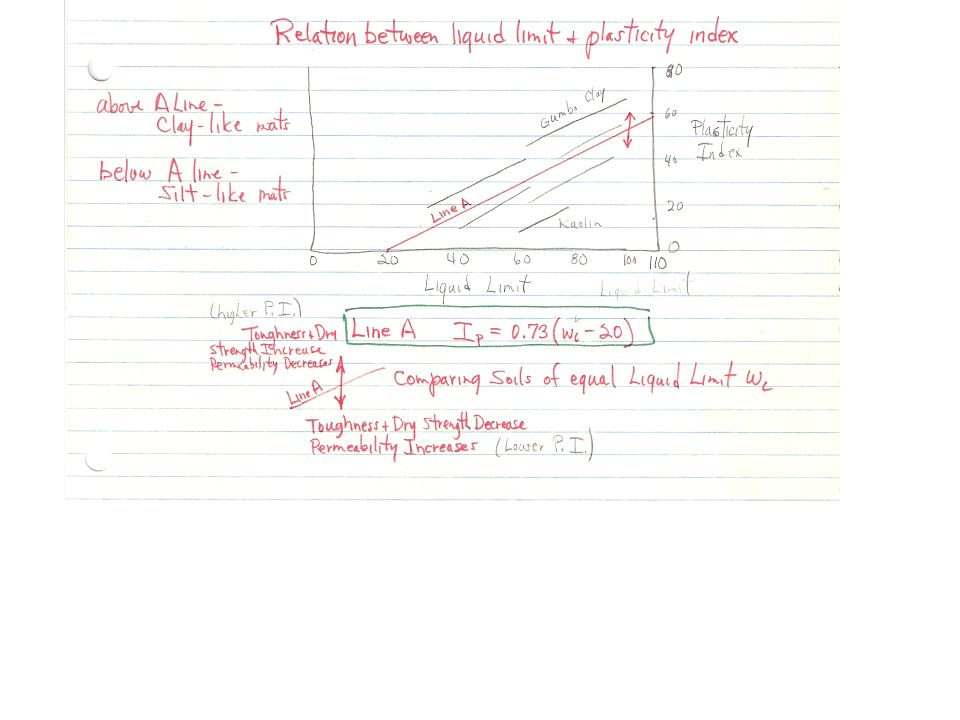 Relation between liquid limit + plasticity index
above A Line -
Clay-like mats
below A line -
Silt-like mats
Gumbo Clay
Line A
Kaolin
80
60
40
20
0
Plasticity
Index
0 20 40 60 80 100 110
Liquid Limit
Liquid Limit
(higher P.I.)
Toughness + Dry
Strength Increase
Permeability Decreases
Line A Ip = 0.73(wL - 20)
Line A
Comparing Soils of equal Liquid Limit WL
Toughness + Dry Strength Decrease
Permeability Increases (Lower P.I.)